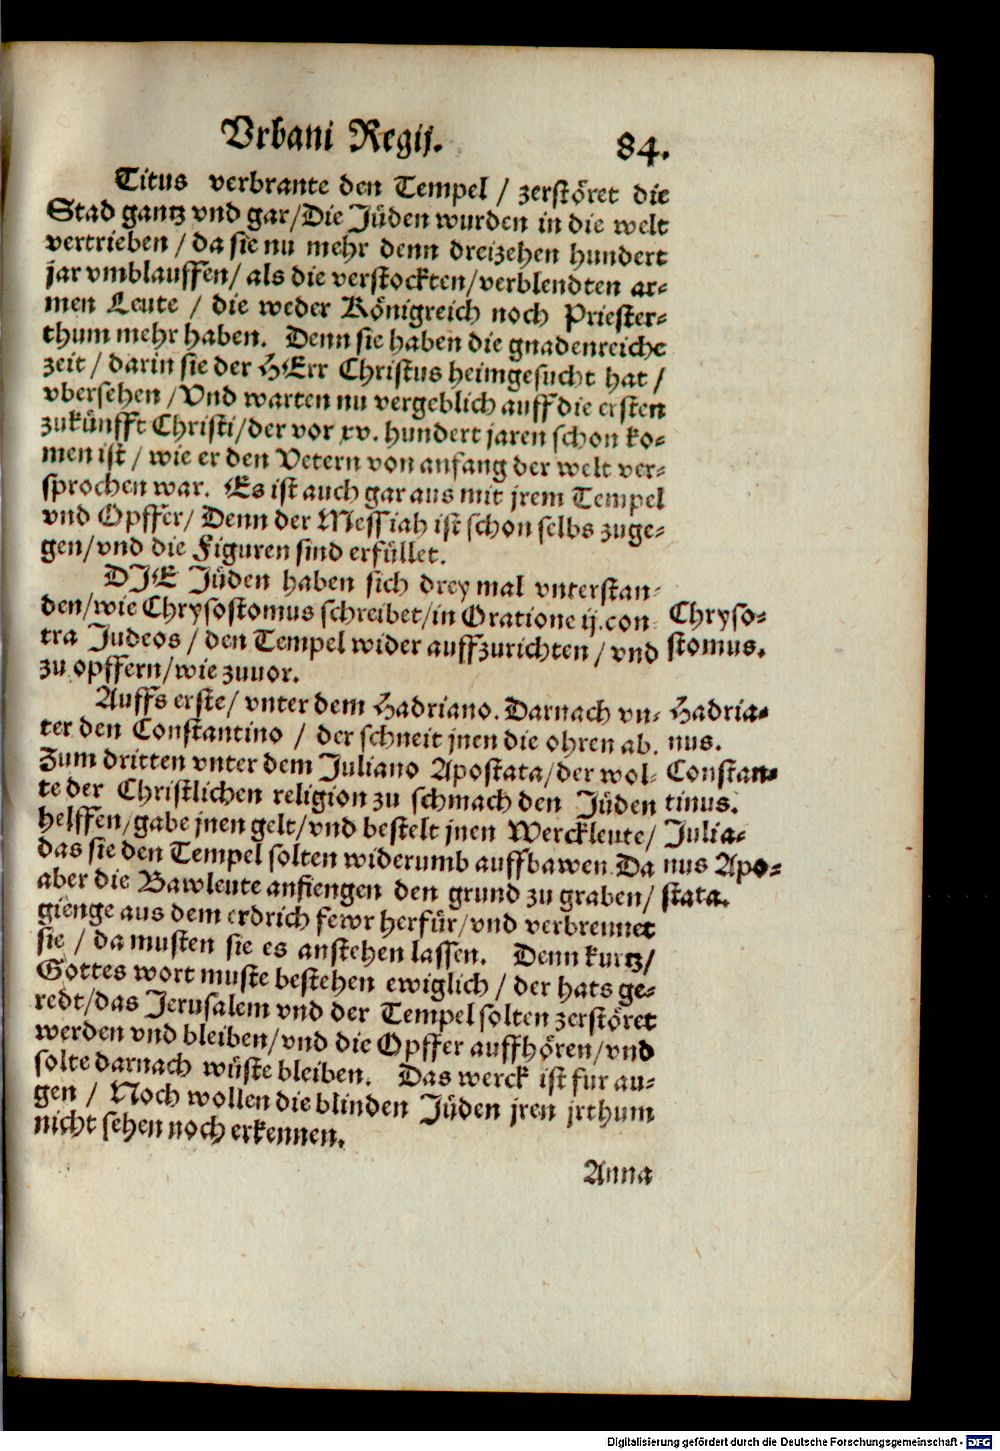 Vrbani Regij. 84.
Titus verbrante den Tempel / zerstöret die
Stad gantz vnd gar/Die Jüden wurden in die welt
vertrieben / da sie nu mehr denn dreizehen hundert
jar vmblauffen/ als die verstockten/verblendten ar-
men Leute / die weder Königreich noch Priester-
thum mehr haben. Denn sie haben die gnadenreiche
zeit / darin sie der HErr Christus heimgesucht hat /
vbersehen /Vnd warten nu vergeblich auff die ersten
zukünfft Christi/der vor xv. hundert jaren schon ko-
men ist / wie er den Vetern von anfang der welt ver-
sprochen war. Es ist auch gar aus mit jrem Tempel
vnd Opffer/ Denn der Messiah ist schon selbs zuge-
gen/vnd die Figuren sind erfüllet.
DJE Jüden haben sich drey mal vnterstan-
den/wie Chrysostomus schreibet/in Oratione ij.con-
tra Judeos / den Tempel wider auffzurichten / vnd
zu opffern/wie zuuor.
Chryso-
stomus.
Auffs erste/ vnter dem Hadriano. Darnach vn-
ter den Constantino / der schneit jnen die ohren ab.
Zum dritten vnter dem Juliano Apostata/der wol-
te der Christlichen religion zu schmach den Jüden
helffen/gabe jnen gelt/vnd bestelt jnen Werckleute/
das sie den Tempel solten widerumb auffbawen. Da
aber die Bawleute anfiengen den grund zu graben/
gienge aus dem erdrich fewr herfür/vnd verbrennet
sie / da musten sie es anstehen lassen. Denn kurtz/
Gottes wort muste bestehen ewiglich / der hats ge-
redt/das Jerusalem vnd der Tempel solten zerstöret
werden vnd bleiben/vnd die Opffer auffhören/vnd
solte darnach wüste bleiben. Das werck ist fur au-
gen / Noch wollen die blinden Jüden jren jrthum
nicht sehen noch erkennen.
Hadria-
nus.
Constan-
tinus.
Julia-
nus Apo-
stata.
Anna
Digitalisierung gefördert durch die Deutsche Forschungsgemeinschaft - DFG